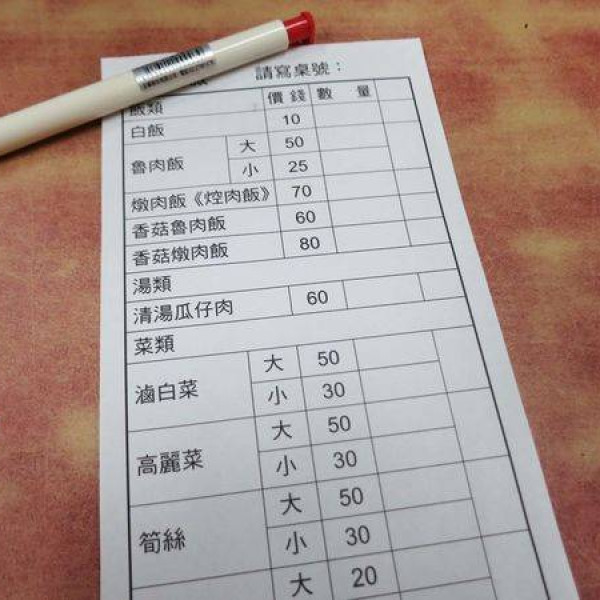 請寫桌號：
飯類 價錢 數量
白飯 10
魯肉飯 大 50
小 25
燉肉飯《焢肉飯》 70
香菇魯肉飯 60
香菇燉肉飯 80
湯類
清湯瓜仔肉 60
菜類
滷白菜 大 50
小 30
高麗菜 大 50
小 30
筍絲 大 50
小 30
大 20